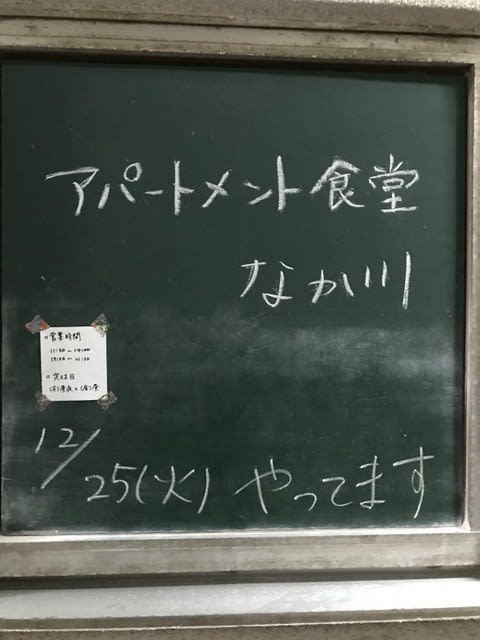 アパートメント食堂
なか川
○営業時間
11:30～14:00
○定休日
12/25(火) やってます